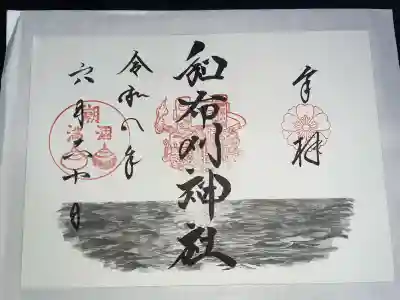 奉拝
和布刈神社
令和八年
六月三十日